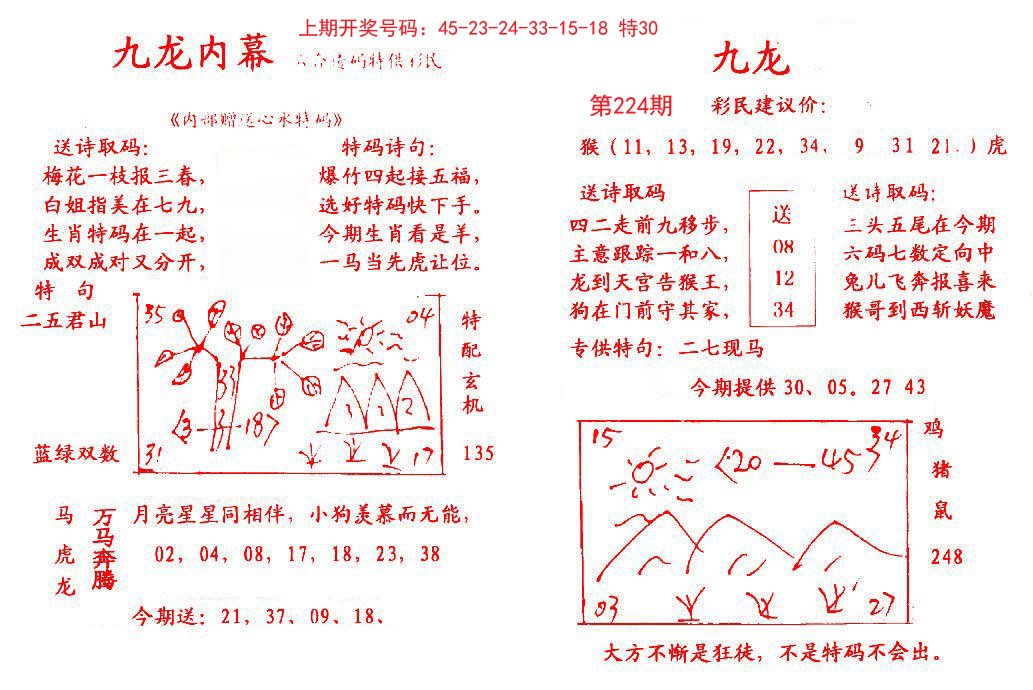 上期开奖号码：45-23-24-33-15-18 特30
九龙内幕
码特供彩民
《内部赠送心水特码》
送诗取码：
梅花一枝报三春，
白姐指美在七九，
生肖特码在一起，
成双成对又分开，
特码诗句：
爆竹四起接五福，
选好特码快下手。
今期生肖看是羊，
一马当先虎让位。
特 句
二五君山
蓝绿双数
35
04
33
3
18
31
17
1
2
特配玄机
135
马虎龙
万马奔腾
月亮星星同相伴，小狗羡慕而无能，
02，04，08，17，18，23，38
今期送：21、37、09、18、
九龙
第224期
彩民建议价：
猴（11，13，19，22，34，9 31 21.）虎
送诗取码
四二走前九移步，
主意跟踪一和八，
龙到天宫告猴王，
狗在门前守其家，
送
08
12
34
送诗取码：
三头五尾在今期
六码七数定向中
兔儿飞奔报喜来
猴哥到西斩妖魔
专供特句：二七现马
今期提供 30、05。27 43
15
34
20—45
03
27
鸡
猪
鼠
248
大方不惭是狂徒，不是特码不会出。